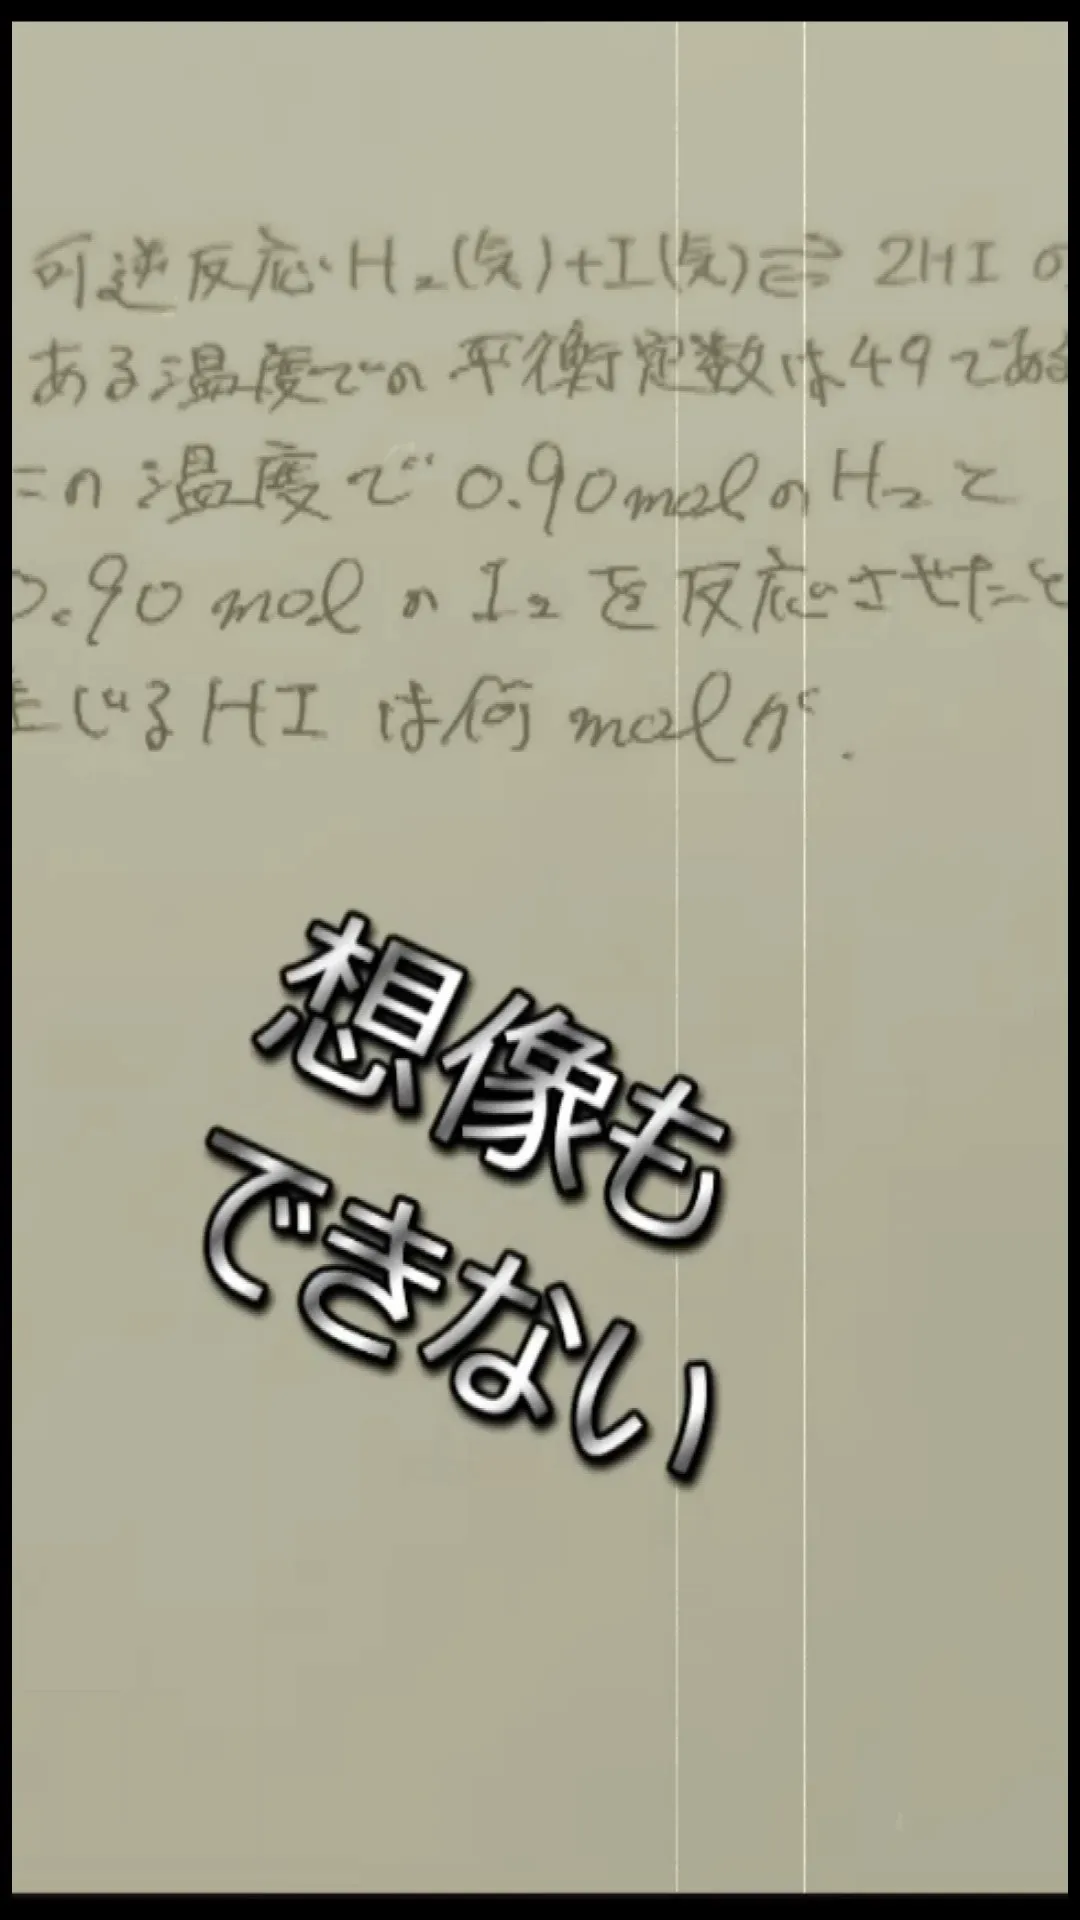 可逆反応 H₂(気)+I(気)⇄ 2HI の
ある温度での平衡定数は49である
この温度で 0.90molのH₂と
0.90molのI₂を反応させたと
生じるHIは何molか.
想像も
できない